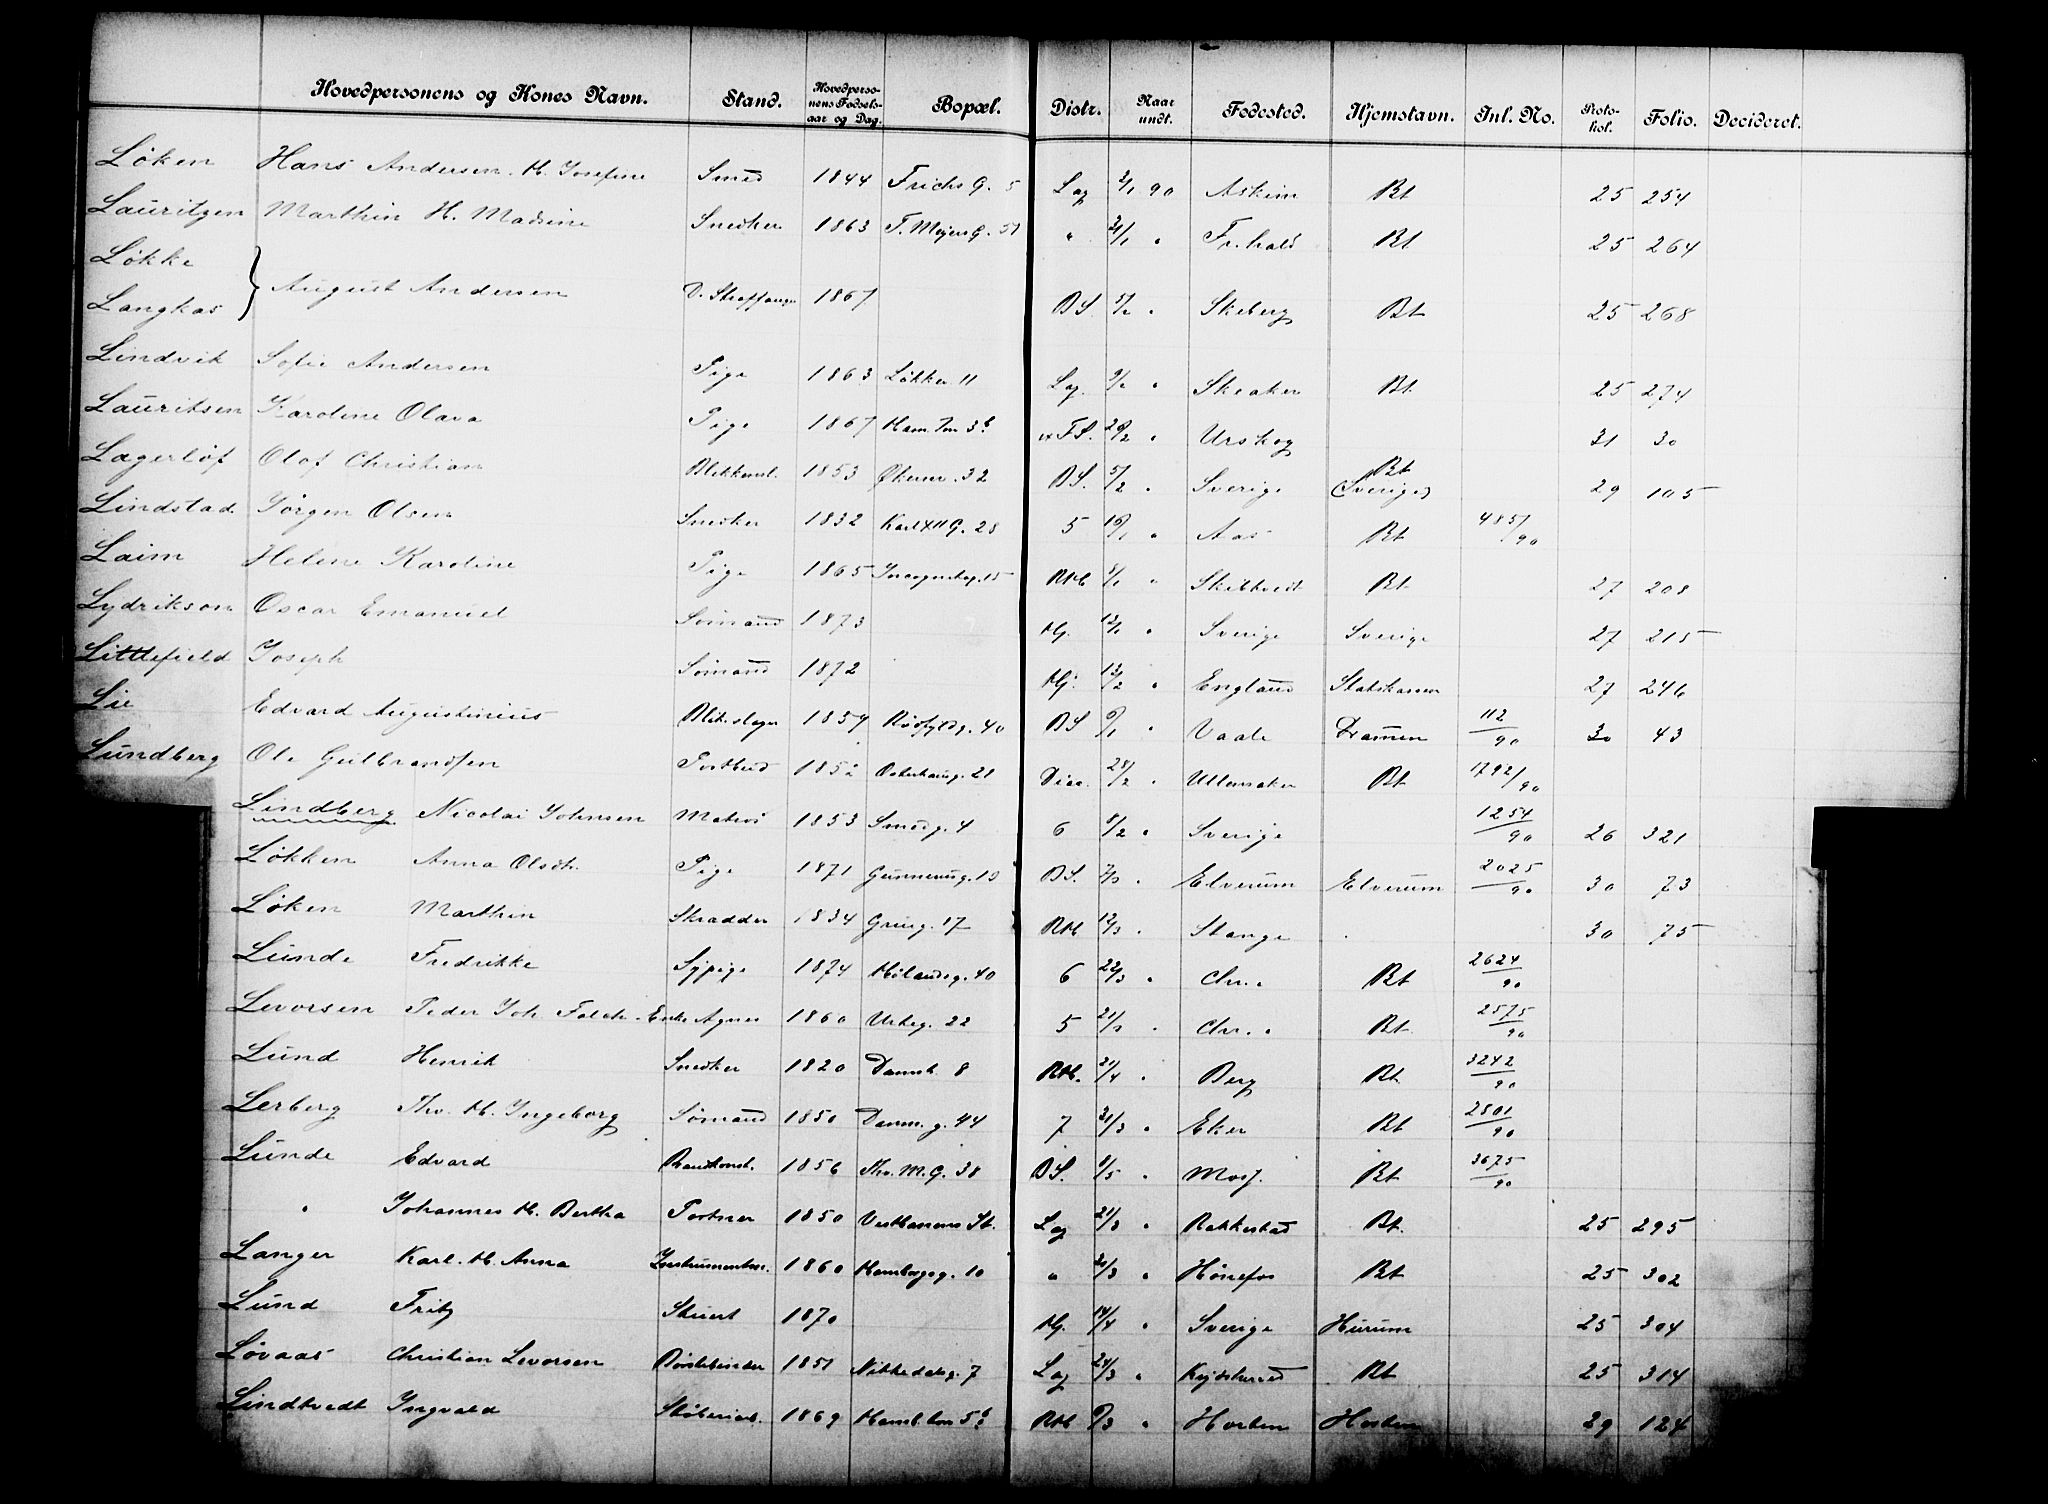 Hovedpersonens og Kones Navn. Stand. Hovedpersonens Fødselsaar og Dag. Bopæl. Distr. Naar undt. Fødested. Hjemstavn. Inl. No. Protokol. Folio. Decideret.
Løken Hans Andersen. H. Josefine Smed 1844 Frichs G. 5 Lag 2/1 90 Askim Bt 25 254
Lauritzen Marthin H. Madsine Snedker 1863 T. Meyers G. 51 " 24/1 " Fr.hald Bt 25 264
Løkke
Langkas } August Andersen D. Straffange 1867 DS. 5/2 " Skeberg Bt 25 268
Lindvik Sofie Andersen Pige 1863 Løkken 11 Lag 9/2 " Skeaker Bt 25 274
Lauritsen Karoline Olava Pige 1867 Ham. 3b FS. 28/2 " Urskog 31 30
Lagerløf Olof Christian Blikkensl. 1853 Økernv. 32 DS. 5/2 " Sverige Bt (Sverige) 29 105
Lindstad Jørgen Olsen Snedker 1832 Karl XII G. 28 5 16/1 " Aas Bt 485/90
Laim Helene Karoline Pige 1865 Incognitog. 15 RH 8/1 " Skibtvedt Bt 27 208
Lydrikson Oscar Emanuel Sømand 1873 Hj. 13/1 " Sverige Sverige 27 215
Littlefield Joseph Sømand 1872 Hj. 13/2 " England Statskassen 27 246
Lie Edvard Augustinius Blikslager 1854 Rødfyldg. 40 DS 6/1 " Vaale Dramen 112/90 30 43
Lundberg Ole Gulbrandsen Postbud 1852 Osterhausg. 21 Diac. 28/2 " Ullensaker Bt 1792/90
Lindberg Nicolai Johnsen Matros 1853 Smedg. 4 6 8/2 " Sverige 1254/90 26 321
Løkken Anna Olsdtr. Pige 1871 Gunnerusg. 10 DS. 7/3 " Elverum Elverum 2025/90 30 73
Løken Marthin Skrædder 1834 Grünerg. 17 RH 12/3 " Stange 30 75
Lunde Fredrikke Sypige 1874 Hølandsg. 40 6 22/3 " Chr.a Bt 2624/90
Levorsen Peder Joh. Falch. Enke Agnes 1860 Urteg. 22 5 21/3 " Chr.a Bt. 2575/90
Lund Henrik Snedker 1820 Damst. 8 RH. 21/4 " Berg Bt. 3242/90
Lerberg Thv. H. Ingeborg Sømand 1850 Danm. g. 44 7 31/3 " Eker Bt 2801/90
Lunde Edvard 1856 Thv. M. G. 38 DS. 8/5 " Moss. Bt 3675/90
" Johannes H. Bertha Portner 1850 Vestbanens St. Lag 21/3 " Rakkestad Bt. 25 295
Langer Karl. H. Anna Instrumentm. 1860 Hamborgg. 10 " 21/3 " Hønefos Bt 25 302
Lund Fritz Stuert 1870 Hj. 14/4 " Sverige Hurum 25 304
Løvaas Christian Levorsen Børstebinder 1851 Nittedalsg. 7 Lag 24/3 " Bt 25 314
Lindtvedt Ingvald Støberiarb. 1869 RH 6/3 " Horten Horten 29 124